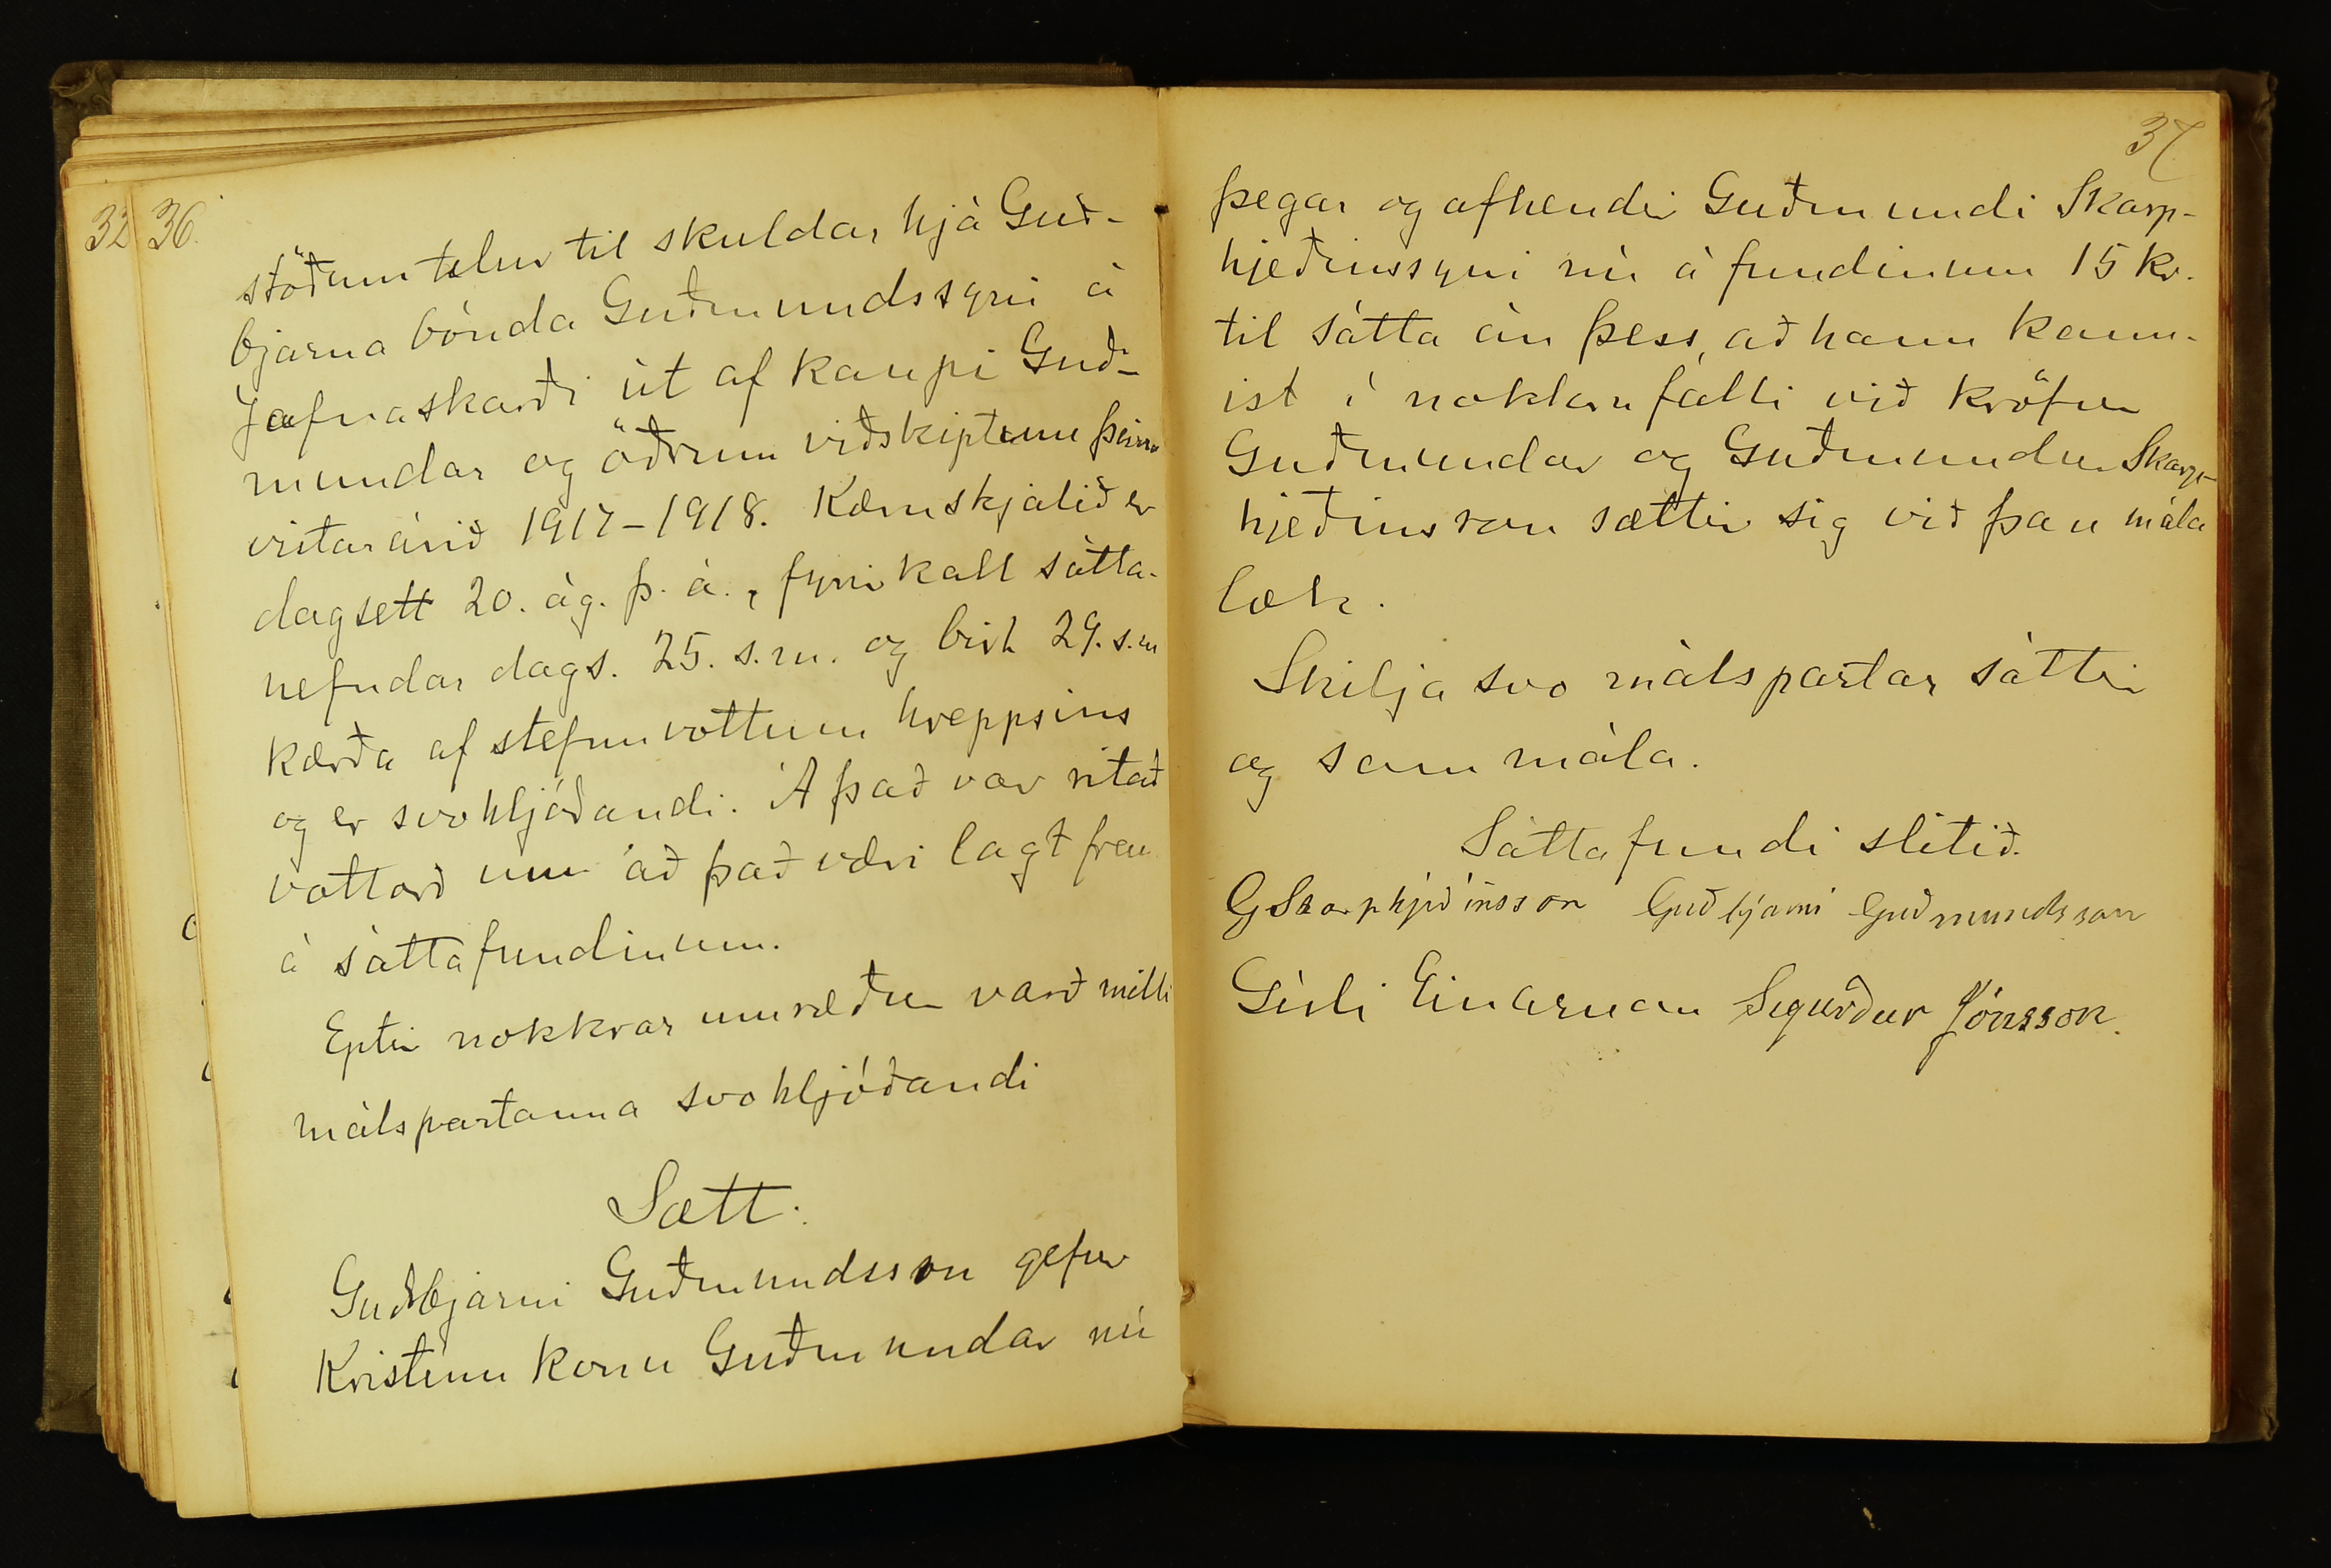 32
36.
stöðum telur til skuldar hjá Guð-
bjarna bónda Guðmundssyni á
Jafnaskarði út af kaupi Guð-
mundar og öðrum viðskiptum þeirra
vistarárið 1917-1918. Kæruskjalið er
dagsett 20. ág. þ. á., fyrirkall sátta-
nefndar dags. 25. s.m. og birt 29. s.m
kærða af stefnuvottum hreppsins
og er svohljóðandi. Á það var ritað
vottorð um að það væri lagt fram
á sáttafundinum.
Eptir nokkrar umræður varð milli
málspartanna svohljóðandi
Sætt:
Guðbjarni Guðmundsson gefur
Kristínu konu Guðmundar nú
37
þegar og afhendir Guðmundi Skarp-
hjeðinssyni nú á fundinum 15 kr.
til sátta án þess, að hann kann-
ist í nokkru falli við kröfur
Guðmundar og Guðmundur Skarp-
hjeðinsson sættir sig við þau mála
lok.
Skilja svo málspartar sáttir
og sammála.
Sáttafundi slitið.
G Skarphjeðinsson Guðbjarni Guðmundsson
Gísli Einarsson Sigurður Jónsson.